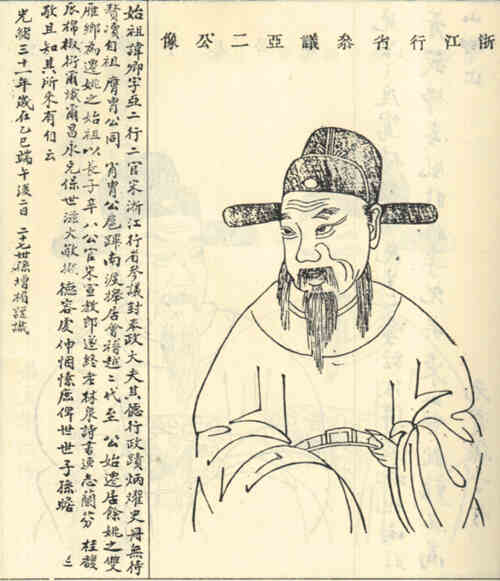 浙江行省參議亞二公像
始祖諱鄉字亞二行二官宋浙江行省參議封奉政大夫其德行政蹟炳燿史冊無待
贅瀆自祖膺胄公同 公扈蹕南渡擇居會稽越二代至 公始遷居餘姚之雙
雁鄉為遷姚之始祖以長子辛八公官宋宣教郎遂終老林泉詩書適志蘭芬桂馥
瓜棉椒衍爾熾爾昌永克保世滋大敬撫德容虔伸悃愫庶俾世世子孫瞻
敬且知其所來有自云
光緒三十一年歲在乙巳端午後二日 二十七世孫增 謹識